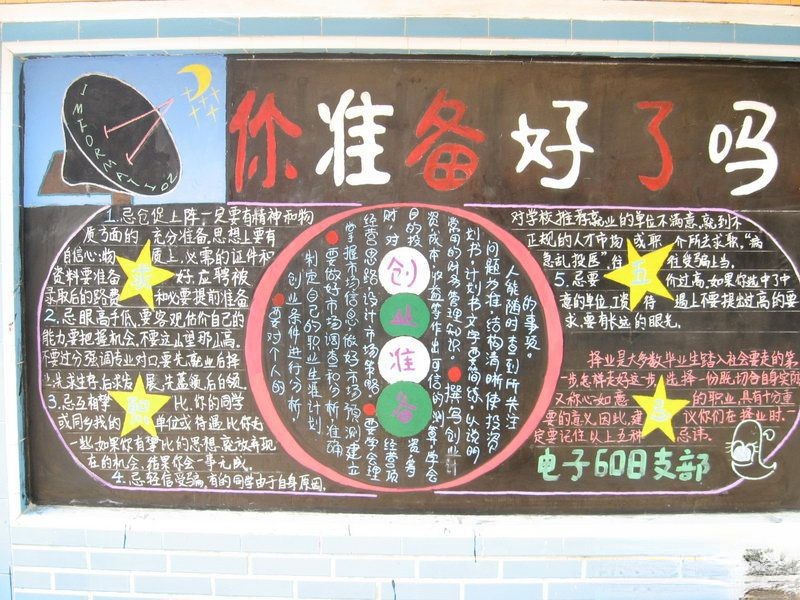 INFORMATION
你准备好了吗
1.忌仓促上阵一定要有精神和物
质方面的 充分准备.思想上要有
自信心;物 质上,必需的证件和
资料要准备 好.应聘被
录取后的路费 和必要提前准备
2.忌眼高手低,要客观估价自己的
能力要把握机会,不要这山望那山高.
不要过分强调专业对口要先就业后择
业.先求生存,后求 展.先蓝领,后白领.
3.忌互相攀 比.你的同学
或同乡找的 单位或待遇比你
一些,如果你有攀比的思想,就放弃现
在的机会,结果你会一事无成.
4.忌轻信受骗,有的同学由于自身原因,
创业准备
要对个人的
创业条件进行分析,
制定自己的职业生涯计划
要做好市场调查和分析准确
掌握市场信息做好市场预测建立
经营思路设计市场策略
要学会理
常用的财务管理知识.
撰写创业计
划书.计划书文字要简练,以说明
问题为准,结构清晰使投资
人能随时查到所关注
的事项。
对学校推荐就业的单位不满意,就到不
正规的人才市场 或职 介所去求职,"病
急乱投医"往 往受骗上当.
5.忌要 价过高,如果你选中了中
意的单位,工资 待 遇上不要提出过高的要
求,要有长远的眼光.
五
忌
择业是大多数毕业生踏入社会要走的第
一步.怎样走好这一步,选择一份既切合自身实际
又称心如意 的职业,具有十分重
要的意义.因此,建 议你们在择业时,一
定要记住以上五种 忌讳.
电子608支部